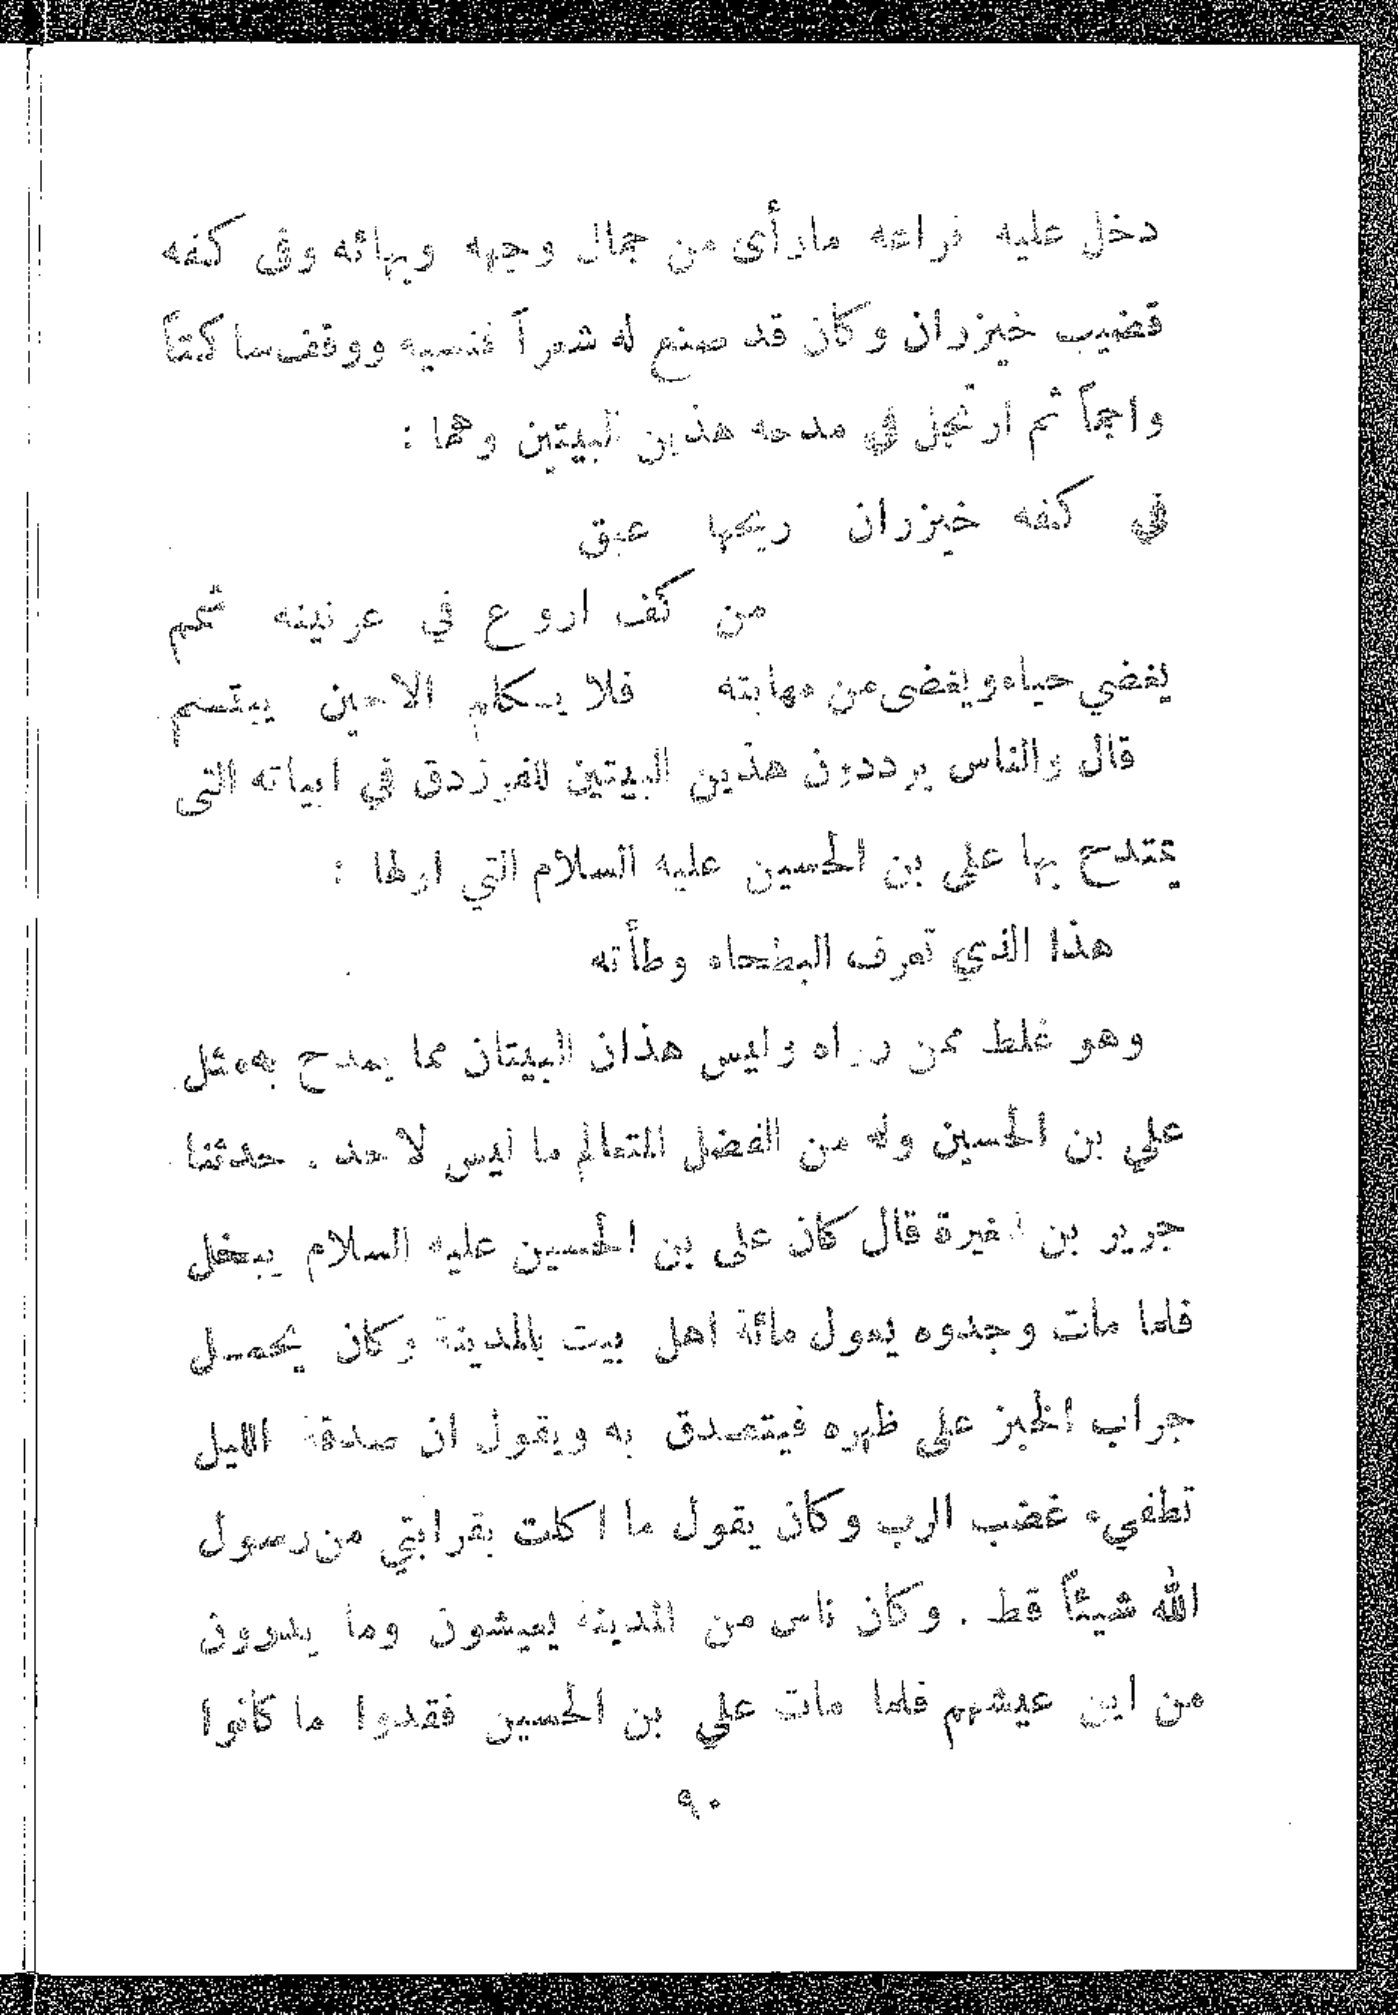 دخل عليه فراعه مارأى من جمال وجهه وبهائه وفى كفه
قضيب خيزران وكان قد صنع له شعراً فنسيه ووقف ساكتاً
واجماً ثم ارتجل في مدحه هذين البيتين وهما :
في كفه خيزران ريحها عبق
من كف اروع في عرنينه شمم
يغضي حياء ويغضى من مهابته فلا يكلم الا حين يبتسم
قال والناس يرددون هذين البيتين للفرزدق في ابياته التى
يمتدح بها على بن الحسين عليه السلام التي اولها :
هذا الذي تعرف البطحاء وطأته
وهو غلط ممن رواه وليس هذان البيتان مما يمدح به مثل
علي بن الحسين وله من الفضل المتعالم ما ليس لاحد . حدثنا
جرير بن المغيرة قال كان على بن الحسين عليه السلام يبخل
فلما مات وجدوه يعول مائة اهل بيت بالمدينة وكان يحمل
جراب الخبز على ظهره فيتصدق به ويقول ان صدقة الليل
تطفيء غضب الرب وكان يقول ما اكلت بقرابتي من رسول
الله شيئاً قط . وكان ناس من المدينة يعيشون وما يدرون
من اين عيشهم فلما مات علي بن الحسين فقدوا ما كانوا
٩٠